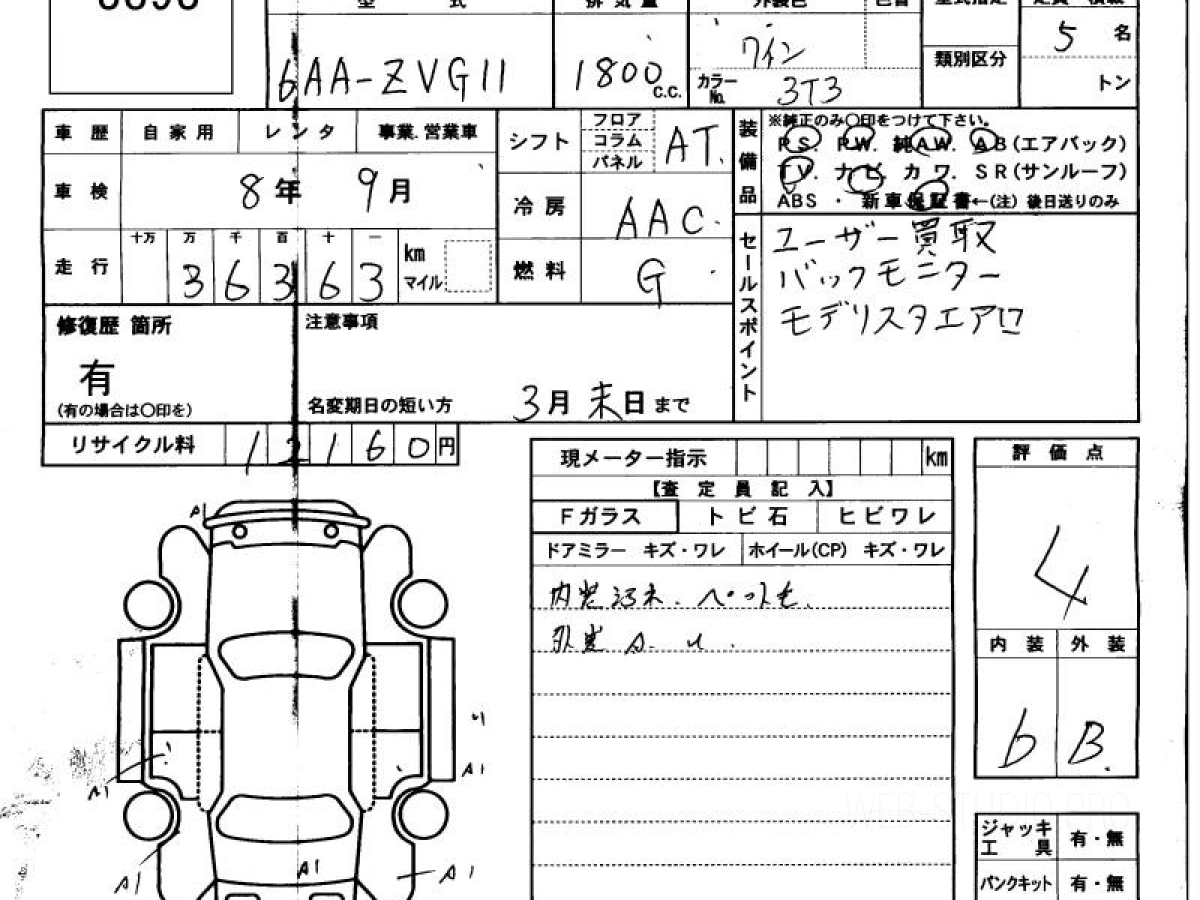 型 式
排 気 量
外装色
色替
型式指定
定員・積載
6AA-ZVG11
1800 c.c.
ワイン
カラーNo. 3T3
類別区分
5 名
トン
車 歴 自 家 用 レ ン タ 事業.営業車
シフト フロア コラム パネル AT.
装備品
※純正のみ〇印をつけて下さい。
PS. PW. 純AW. AB(エアバック)
TV. ナビ. カワ. SR(サンルーフ)
ABS ・ 新車保証書←(注) 後日送りのみ
車 検 8年 9月
冷 房 AAC.
走 行 十万 万 千 百 十 一
3 6 3 6 3 km マイル
燃 料 G
セールスポイント
ユーザー買取
バックモニター
モデリスタエアロ
修復歴 箇所
有
(有の場合は〇印を)
注意事項
名変期日の短い方 3月末日 まで
リサイクル料 1 2 1 6 0 円
現メーター指示 km
【査 定 員 記 入】
Fガラス ト ビ 石 ヒ ビ ワ レ
ドアミラー キズ・ワレ ホイール(CP) キズ・ワレ
内装汚れ. ペット毛.
外装 A. U.
評 価 点
4
内 装 外 装
b B.
A1
A1
A1
A1
A1
A1
ジャッキ工具 有・無
パンクキット 有・無
WEB-STUDIO.PRO